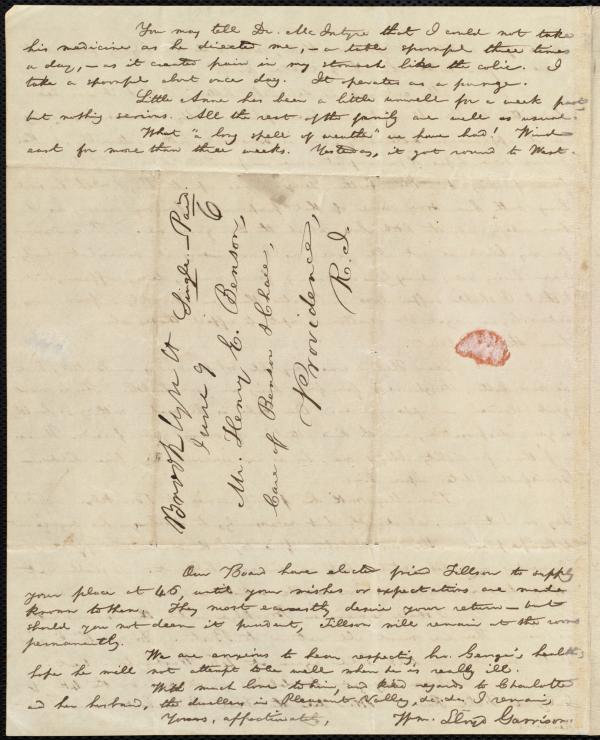 You may tell Dr. McIntyre that I could not take
his medicine as he directed me, – a table spoonful three times
a day, – as it created pain in my stomach like the colic. I
take a spoonful about once day. It operates as a purge.
Little Anne has been a little unwell for a week past
but nothing serious. All the rest of the family are well as usual.
What "a long spell of weather" we have had! Wind
east for more than three weeks. Yesterday, it got round to West.
Brooklyn Ct
June 9
Single. – Paid.
6
Mr. Henry E. Benson,
Care of Benson & Chace,
Providence,
R. I.
Our Board have elected friend Tillson to supply
your place at 46, until your wishes or expectations are made
known to them. They most earnestly desire your return – but
should you not deem it prudent, Tillson will remain at the rooms
permanently.
We are anxious to hear respecting bro. George's health,
hope he will not attempt to be well when he is really ill.
With much love to him, and kind regards to Charlotte
and her husband, the dwellers in Pleasant Valley, &c. &c. I remain,
Yours, affectionately, Wm. Lloyd Garrison.